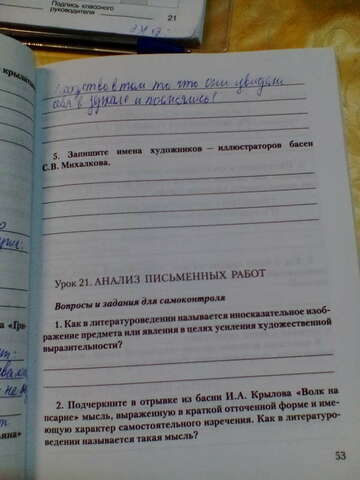 Подпись классного
руководителя
21
в том то что они увидели
себя в зеркале и
5. Запишите имена художников — иллюстраторов басен
С.В. Михалкова.
Урок 21. АНАЛИЗ ПИСЬМЕННЫХ РАБОТ
Вопросы и задания для самоконтроля
1. Как в литературоведении называется иносказательное изоб-
ражение предмета или явления в целях усиления художественной
выразительности?
2. Подчеркните в отрывке из басни И.А. Крылова «Волк на
псарне» мысль, выраженную в краткой отточенной форме и име-
ющую характер самостоятельного наречения. Как в литературо-
ведении называется такая мысль?
53